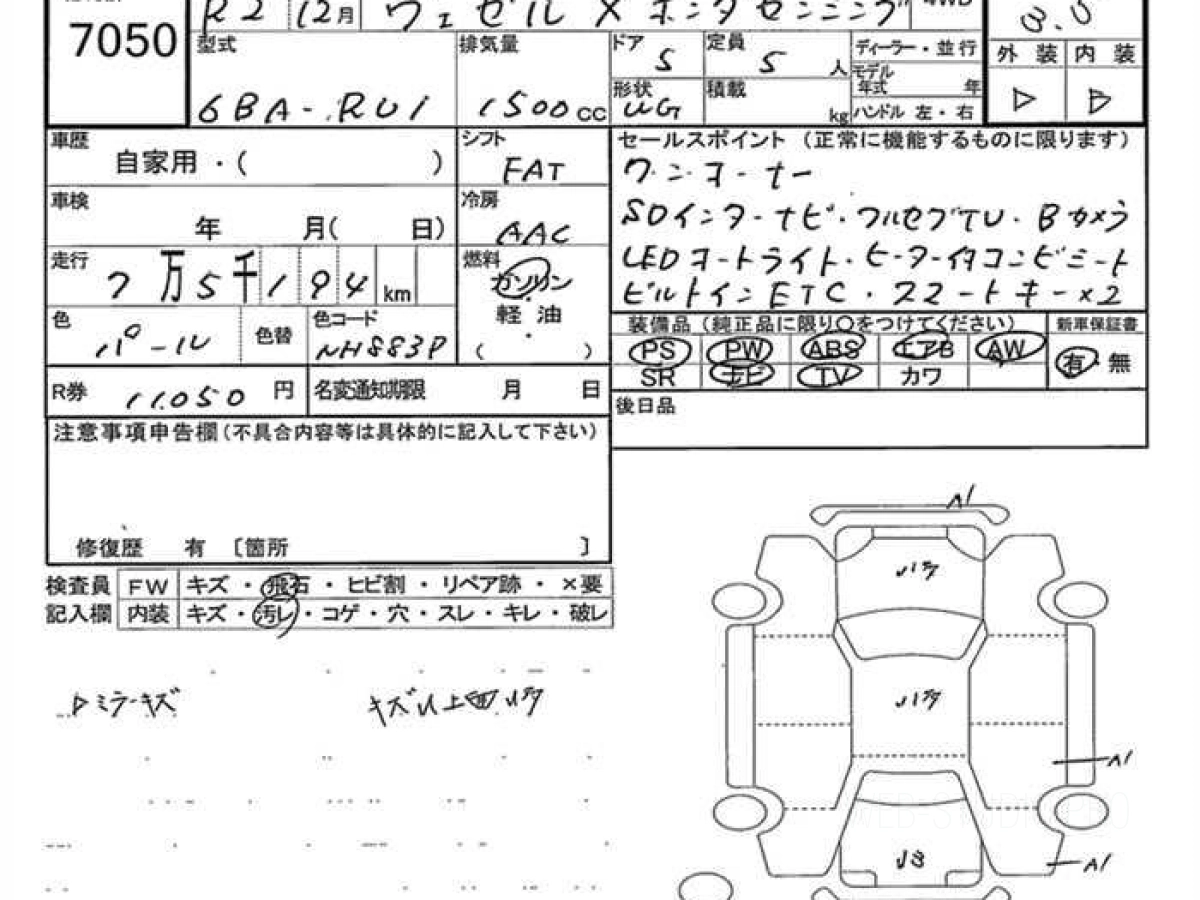 7050
R2 12月 ヴェゼル X ホンダセンシング 4WD
型式 排気量 ドア 5 定員 5 人 ディーラー・並行
外装 内装
6BA-RU1 1500cc 形状 WG 積載 kg モデル年式 年
ハンドル 左・右
車歴 自家用・( ) シフト FAT
セールスポイント (正常に機能するものに限ります)
ワンオーナー
車検 年 月( 日) 冷房 AAC
SDインターナビ・フルセグTV・Bカメラ
走行 7万5千194km 燃料 ガソリン・軽油 ( )
LEDオートライト・ヒーター付コンビシート
ビルトインETC・スマートキー×2
色 パール 色替 色コード NH883P
装備品 (純正品に限り○をつけてください) 新車保証書
PS PW ABS エアB AW 有・無
SR ナビ TV カワ
R券 11.050 円 名変通知期限 月 日
後日品
注意事項申告欄(不具合内容等は具体的に記入して下さい)
修復歴 有 〔箇所 〕
検査員 FW キズ・飛石・ヒビ割・リペア跡・×要
記入欄 内装 キズ・汚レ・コゲ・穴・スレ・キレ・破レ
ミラーキズ
A1
A1
A1